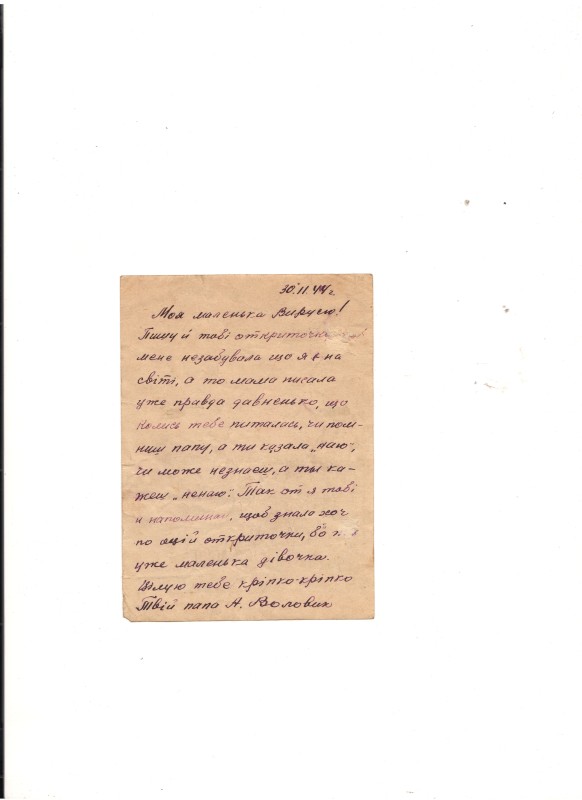 30.II 44 г.
Моя маленька Вирусю!
Пишу й тобі откриточку
мене незабувала що я є на
світі, а то мама писала
уже правда давненько, що
колись тебе питалась, чи пом-
ниш папу, а ти казала „наю",
чи може незнаєш, а ты ка-
жеш „ненаю". Так от я тобі
и напоминаю, щоб знала хоч
по оцій откриточки, бо
уже маленька дівочка.
Цілую тебе кріпко-кріпко
Твій папа А. Волович